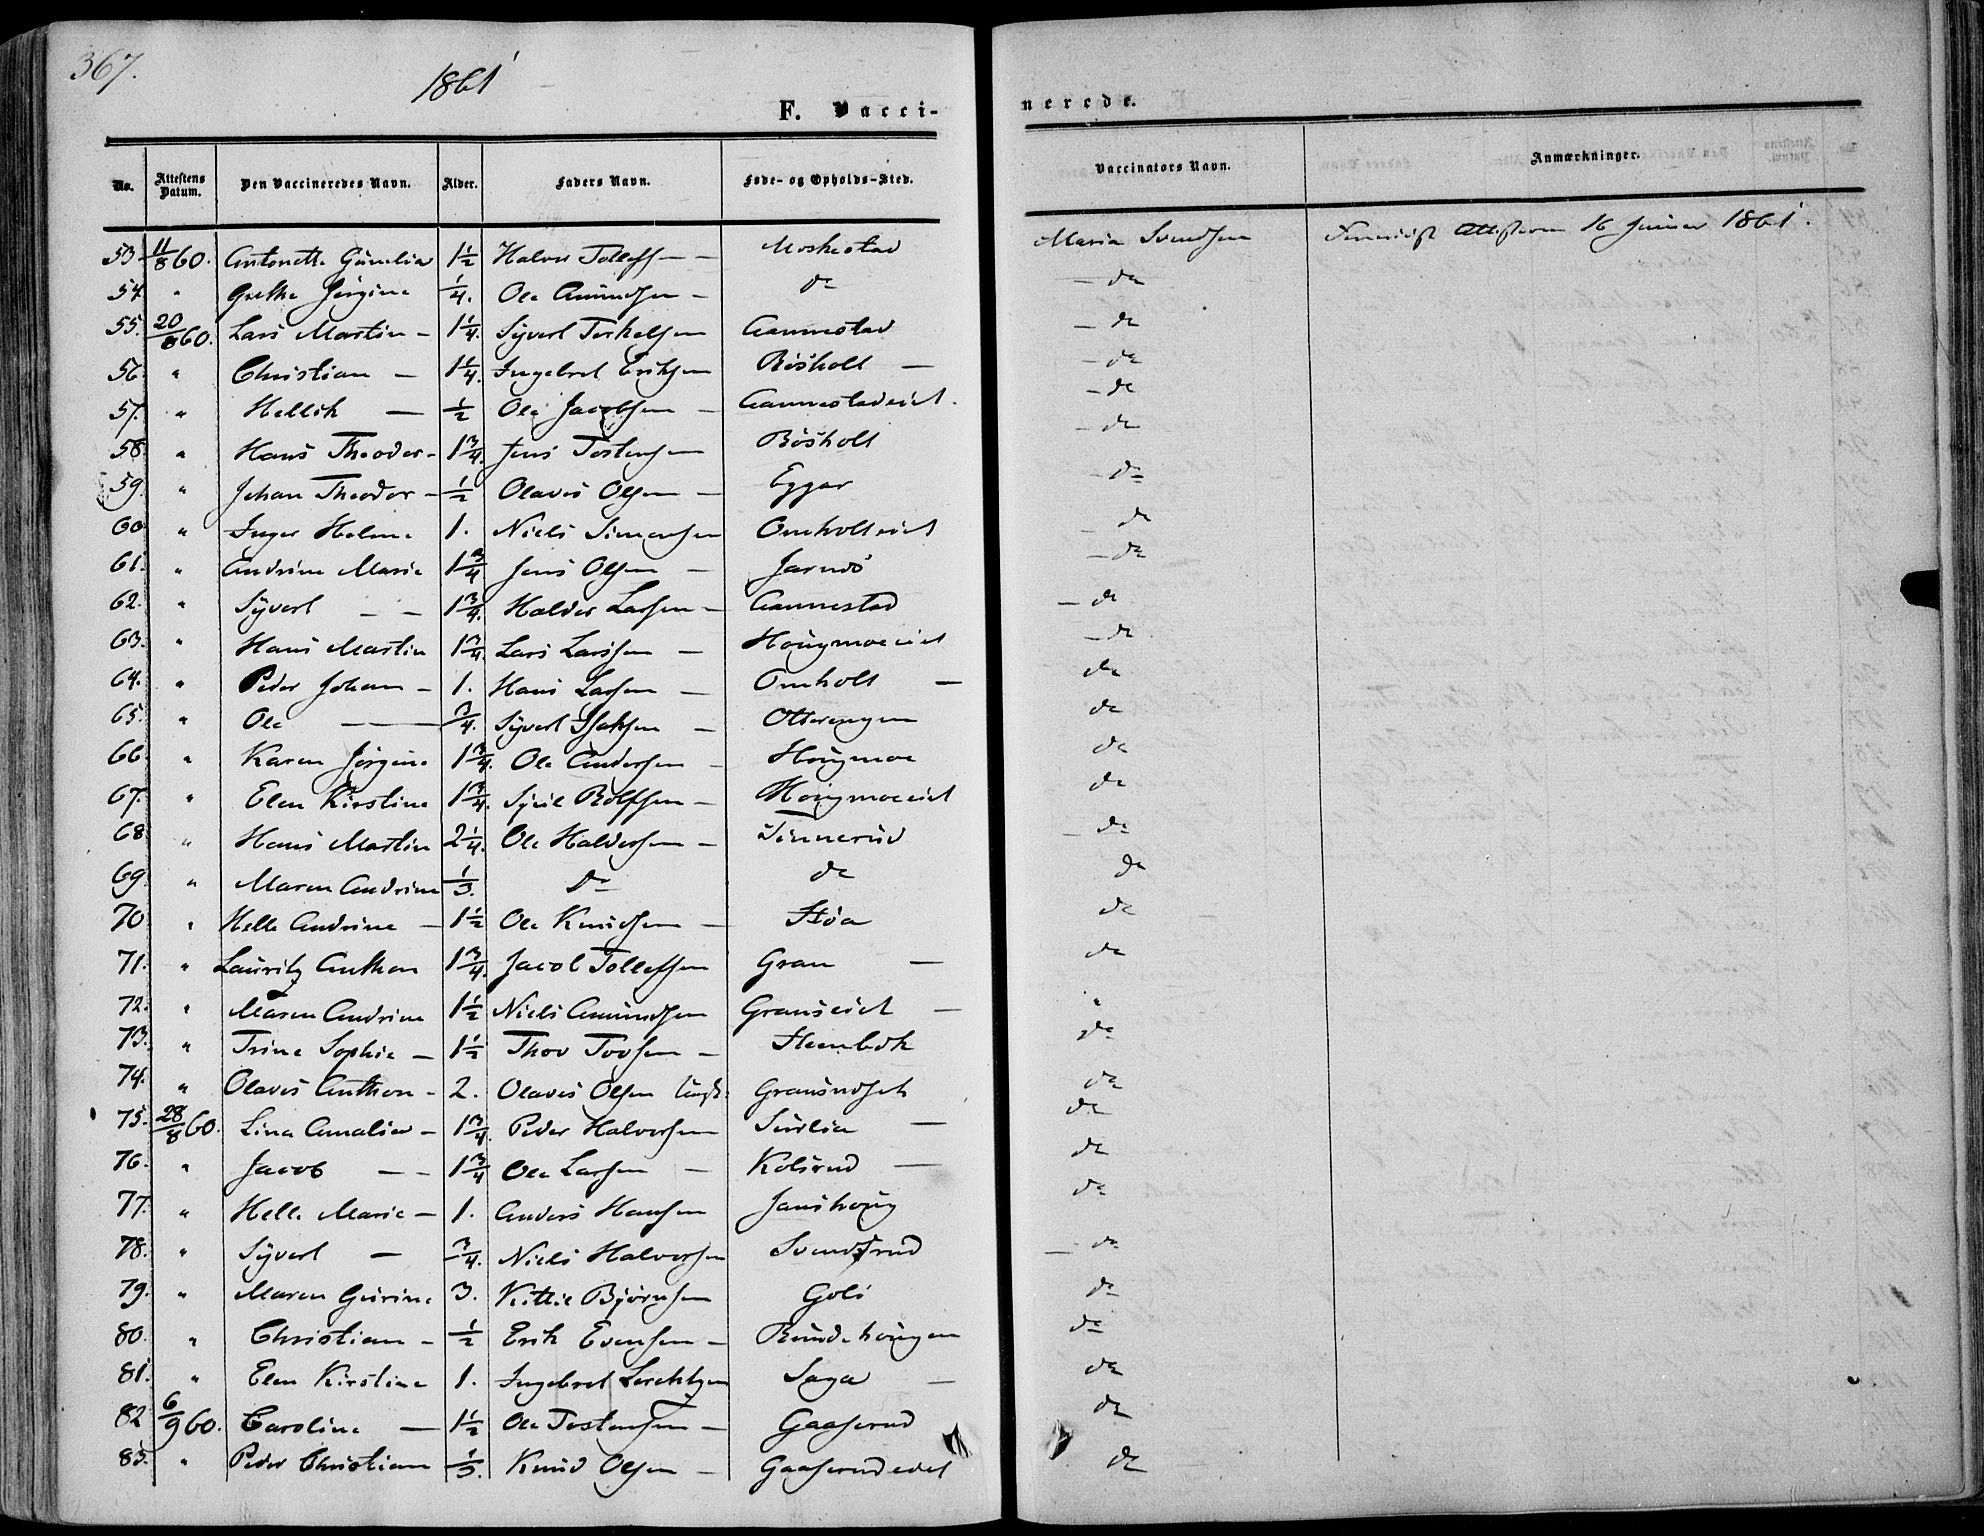 367.
1861
F. Vacci-
nerede.
No. Attestens Datum. Den Vaccineredes Navn. Alder. Faders Navn. Føde- og Opholds-Sted. Vaccinators Navn. Anmærkninger.
53. 11/8 60. Antonette Gunelia 1½ Halvor Tollefs — Moskestad Maria Svendsen Attest 16 Januar 1861.
54. " Grethe Jørgine ¼. Ole Amundsen — do — do
55. 20/8 60. Lars Martin — 1¼. Syvert Terkelsen Aannestad — do
56. " Christian — 1¼. Ingebret Eriksen Bøsholt — — do
57. " Hellik — ½ Ole Jacobsen — Aannestadeiet. — do
58. " Hans Theodor — 1¾. Jens Tostensen Bøsholt — do
59. " Johan Theodor — ½ Olaves Olsen — Eggar — do
60. " Inger Helene 1. Niels Simensen Omholteiet — do
61. " Andrine Marie 1¾ Jens Olsen — Jarnøs — do
62. " Syvert — — 1¾. Haldor Larsen — Aannestad — do
63. " Hans Martin 1¾. Lars Larssen — Hougmoeeiet — do
64. " Peder Johan — 1. Hans Larsen — Omholt — do
65. " Ole — ¾. Syvert Isaksen — Otterengen do
66. " Karen Jørgine 1¾. Ole Andersen — Hougmoe do
67. " Elen Kirstine 1¾. Rolfsen — Hougmoeeiet do
68. " Hans Martin 2¼. Ole Haldorsen — Tinnerud — do
69. " Maren Andrine ⅓. do do do
70. " Helle Andrine — 1½ Ole Knudsen — Støa do
71. " Lauritz Anthon 1¾. Jacob Tollefsen Gran — do
72. " Maren Andrine 1½ Niels Amundsen Granseiet — "
73. " Trine Sophie — 1½ Thov Tovsen — Steenbek do
74. " Olaves Anthon — 2. Olaves Olsen Ungk. Gransødseh do
75. 28/8 60. Lina Amalia — 1¾. Peder Halvorsen Surlia — do
76. " Jacob — — 1¾ Ole Larsen — Kolsrud — do
77. " Helle Marie — 1. Anders Hansen Janshoug do
78. " Syvert — ¾. Niels Halvorsen Svendsrud — do
79. " Maren Gurine 3. Kittil Bjørnsen Goli do
80. " Christian — ½ Erik Evensen — Rundehougen do
81. " Elen Kirstine 1. Ingebret Saga — do
82 6/9 60. Caroline — 1½ Ole Tostensen — Gaaserud do
83. " Peder Christian ⅓. Knud Olsen — Gaaserudedet do